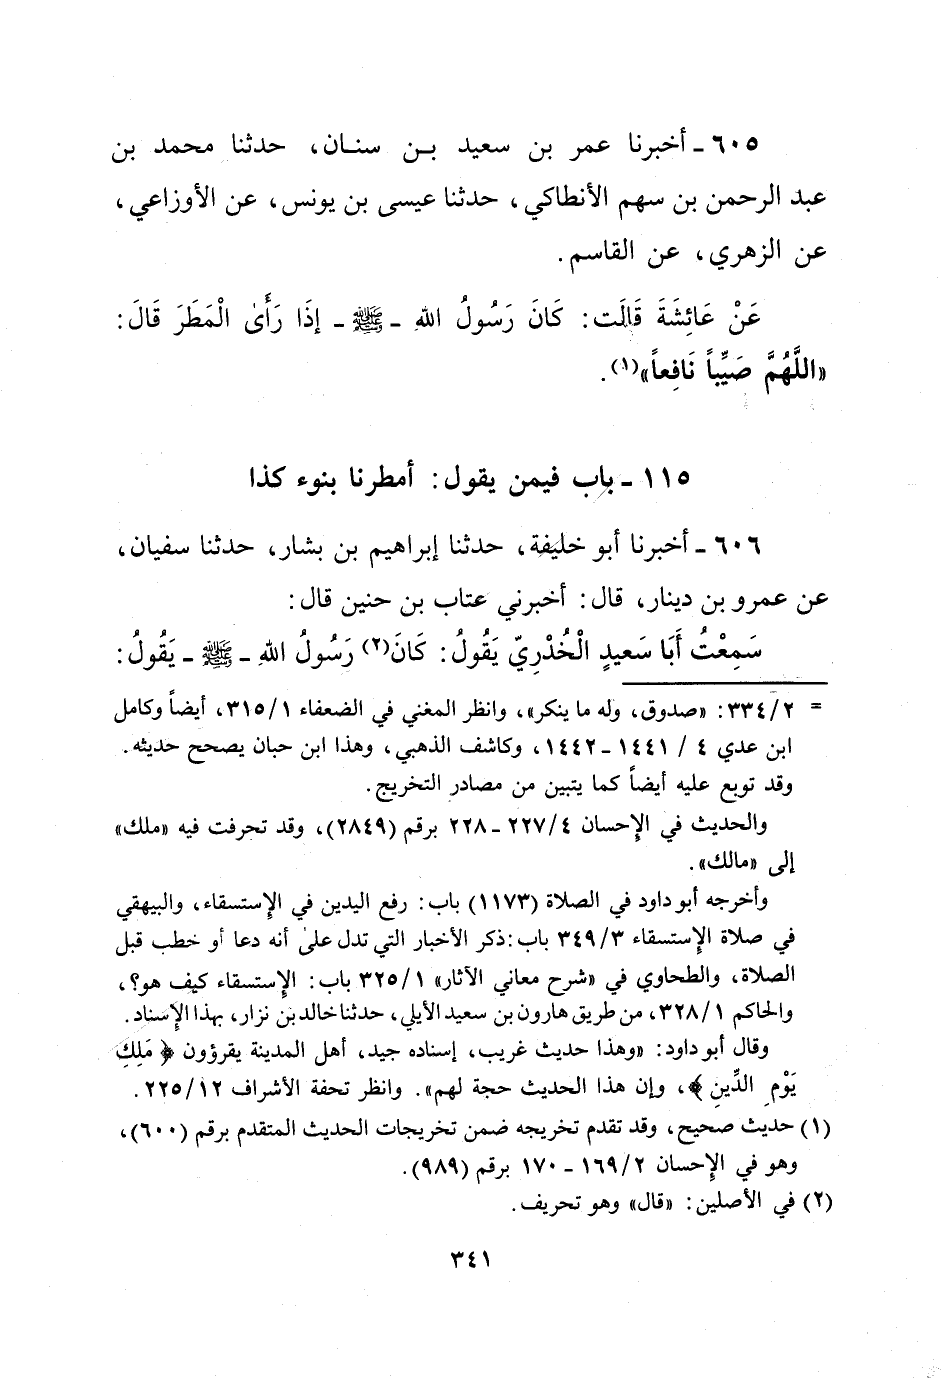 ٦٠٥ ـ أخبرنا عمر بن سعيد بـن سنـان، حدثنا محمد بن
عبد الرحمن بن سهم الأنطاكي، حدثنا عيسى بن يونس، عن الأوزاعي،
عن الزهري، عن القاسم.
عَنْ عَائِشَةَ قَالَت: كَانَ رَسُولُ اللهِ ـ ﷺ ـ إذَا رَأَى الْمَطَرَ قَالَ:
«اللَّهُمَّ صَيِّباً نَافِعاً»(١).
١١٥ ـ باب فيمن يقول: أمطرنا بنوء كذا
٦٠٦ ـ أخبرنا أبو خليفة، حدثنا إبراهيم بن بشار، حدثنا سفيان،
عن عمرو بن دينار، قال: أخبرني عتاب بن حنين قال:
سَمِعْتُ أَبَا سَعيدٍ الْخُدْرِيّ يَقُولُ: كَانَ(٢) رَسُولُ اللهِ ـ ﷺ ـ يَقُولُ:
= ٣٣٤/٢: «صدوق، وله ما ينكر»، وانظر المغني في الضعفاء ٣١٥/١، أيضاً وكامل
ابن عدي ٤ / ١٤٤١ ـ ١٤٤٢، وكاشف الذهبي، وهذا ابن حبان يصحح حديثه.
وقد توبع عليه أيضاً كما يتبين من مصادر التخريج.
والحديث في الإحسان ٢٢٧/٤ ـ ٢٢٨ برقم (٢٨٤٩)، وقد تحرفت فيه «ملك»
إلى «مالك».
وأخرجه أبو داود في الصلاة (١١٧٣) باب: رفع اليدين في الإستسقاء، والبيهقي
في صلاة الإستسقاء ٣٤٩/٣ باب: ذكر الأخبار التي تدل على أنه دعا أو خطب قبل
الصلاة، والطحاوي في «شرح معاني الآثار» ٣٢٥/١ باب: الإستسقاء كيف هو؟،
والحاكم ٣٢٨/١، من طريق هارون بن سعيد الأيلي، حدثنا خالد بن نزار، بهذا الإسناد.
وقال أبو داود: «وهذا حديث غريب، إسناده جيد، أهل المدينة يقرؤون ﴿ مَلِكِ
يَوْمِ الدِّينِ ﴾، وإن هذا الحديث حجة لهم». وانظر تحفة الأشراف ٢٢٥/١٢.
(١) حديث صحيح، وقد تقدم تخريجه ضمن تخريجات الحديث المتقدم برقم (٦٠٠)،
وهو في الإحسان ١٦٩/٢ ـ ١٧٠ برقم (٩٨٩).
(٢) في الأصلين: «قال» وهو تحريف.
٣٤١